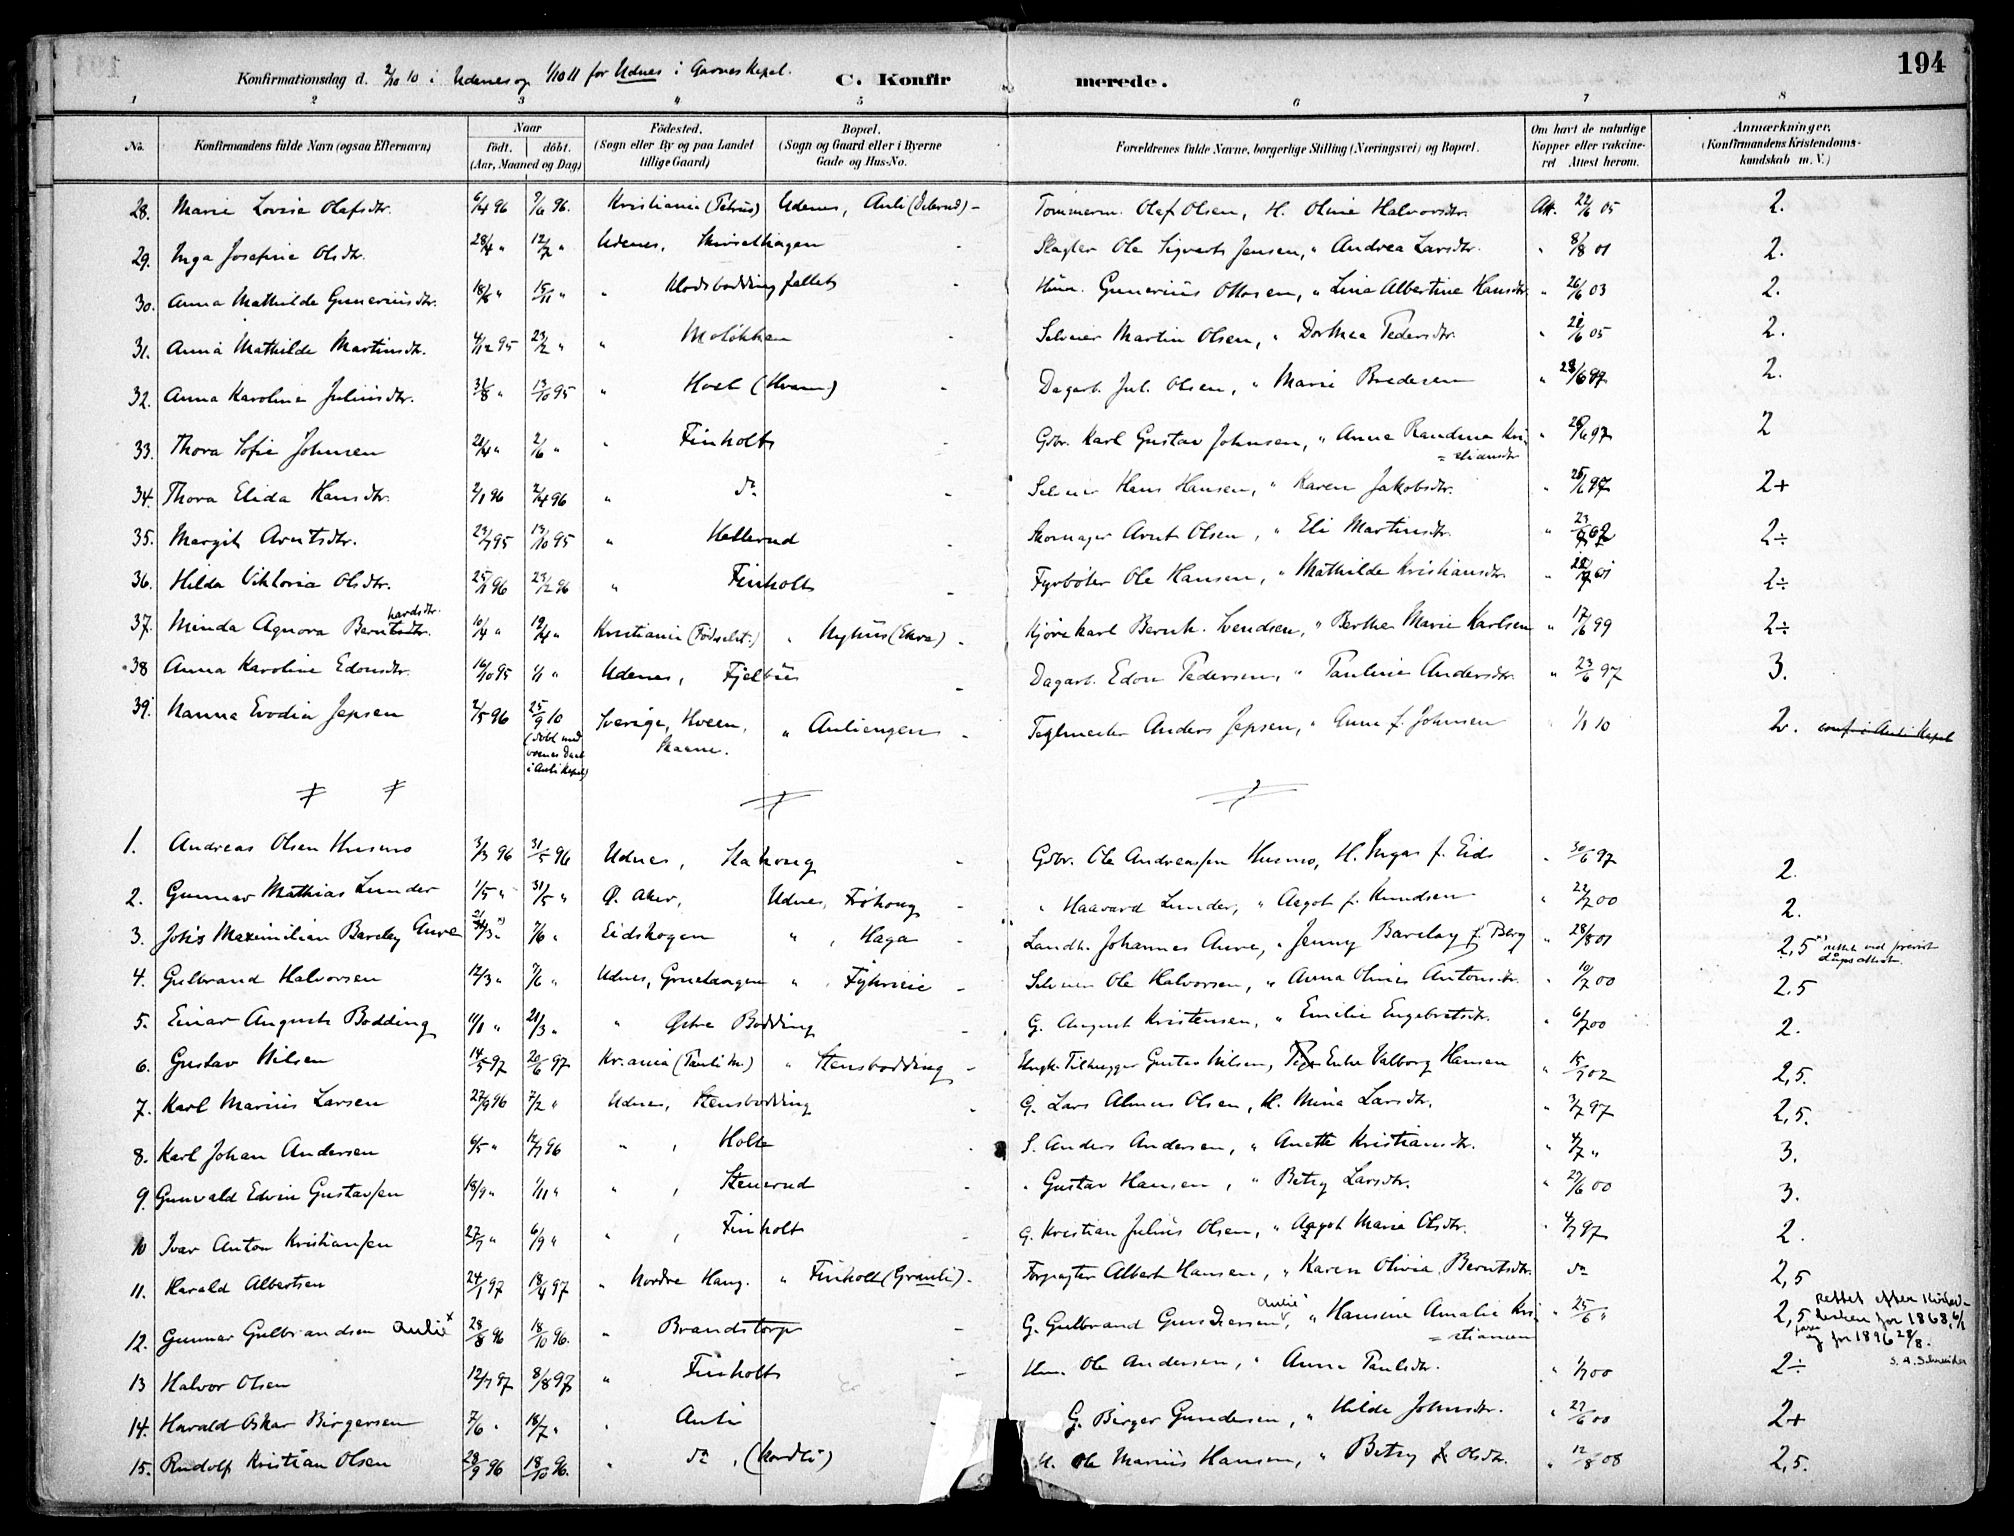 194
Konfirmationsdag d. 2/10 10 i Udenes og 1/10 11 for Udnes i Garnes Kapel. C. Konfirmerede.
1 2 3 4 5 6 7 8
No. Konfirmandens fulde Navn (ogsaa Efternavn) Naar födt. döbt. (Aar, Maaned og Dag) Födested. (Sogn eller By og paa Landet tillige Gaard) Bopæl. (Sogn og Gaard eller i Byerne Gade og Hus-No. Forældrenes fulde Navne, borgerlige Stilling (Næringsvei) og Bopæl. Om havt de naturlige Kopper eller vakcineret Attest herom. Anmærkninger. (Konfirmandens Kristendomskundskab m. V.)
28. Marie Lovise Olafsdtr. 6/4 96 7/6 96. Kristiania (Petrus) Udenes, Auli ( ) - Tømmerm. Olaf Olsen, H. Oline Halvorsdtr. Att. 22/6 05 2.
29. Inga Josefine Olsdtr. 28/4 " 12/7 " Udenes, - Slagter Ole Sigvarts Jensen, " Andrea Larsdtr. " 8/8 01 2.
30. Anna Mathilde Guneriusdtr. 18/8 " 15/11 " " Klodsboddingfallet Hum. Gunerius Ottosen, " Lina Albertine Hansdtr " 26/6 03 2.
31. Anna Mathilde Martinsdtr. 4/12 95 23/2 " " Moløkken - Selveier Martin Olsen, " Dorthea Pedersdtr. " 28/6 05 2.
32. Anna Karoline Juliusdtr. 31/8 " 13/10 95 " Hoel (Hvam) - Dagarb. Jul. Olsen, " Marie Bredesen " 23/6 97 2.
33. Thora Sofie Johnsen 21/4 " 2/6 " " Finholt - Gbr. Karl Gustav Johnsen, " Anna Randine Kri=stiansdtr " 26/6 97 2
34. Thora Elida Hansdtr. 2/1 96 2/4 96 " do - Selveier Hans Hansen, " Karen Jakobsdtr. " 25/6 97 2+
35. Margit Arntsdtr. 23/7 95 13/10 95 " Hellerud - Skomager Arnt Olsen, " Eli Martinsdtr. " 23/ 2÷
36. Hilda Viktoria Olsdtr. 25/1 96 23/2 96 " Finholt - Fyrbøter Ole Hansen, " Mathilde Kristiansdtr. " 01 2÷
37. Minda Agnora Bernhardsdtr. 16/4 " 19/4 " Kristiania (Fødselsst.) " Nyhus (Ekra) - Kjørekarl Bernh. Svendsen, " Berthe Marie Karlsen " 17/6 99 2÷
38 Anna Karoline Edonsdtr. 16/10 95 1/1 " Udenes, Fjelbus - Dagarb. Edon Pedersen, " Pauline Andersdtr. " 23/6 97 3.
39. Nanna Evodia Jepsen 2/5 96 25/9 10 (døbt med i Auli Kapel) Sverige, Hveen, Skaane. " Auliengen - Teglmester Anders Jepsen, " Anna f. Johnsen 1/1 10 2. conf. i Auli Kapel
1. Andreas Olsen Husmo 3/3 96 31/5 96 Udnes, Hakoug - Gbr. Ole Andreassen Husmo, H. Inga f. Eid " 30/6 97 2.
2. Gunnar Mathias Lunder 1/5 " 31/5 " Ø. Aker, Udnes, Frøhoug - " Haavard Lunder, " Aagot f. Knudsen " 22/7 00 2.
3. Johs Maximilian Barclay Aure 21/3 x) 7/6 " Eidskogen " , Haga - Landh. Johannes Aure, " Jenny Barclay f. Berg " 28/8 01 2,5 x) rettet ved prøvet dåpsattest.
4. Gulbrand Halvorsen 12/3 " 7/6 " Udnes, Gruehaugen " , - Selveier Ole Halvorsen, " Anna Oline Antonsdtr. " 10/7 00 2.5
5. Einar August Bodding 11/1 " 21/3 " " Østre Bodding - G. August Kristensen, " Emilie Engebretsdtr. " 6/7 00 2.
6. Gustav Nilsen 14/5 97 20/6 97 Kr.ania (Pauli M.) " Stensbodding - Ungk. Tilhugger Gustav Nilsen, Enke Valborg Hansen " 15/7 02 2,5.
7. Karl Marius Larsen 27/9 96 7/2 " Udnes, Stensbodding - G. Lars Almus Olsen, H. Mina Larsdtr. " 3/7 97 2,5.
8. Karl Johan Andersen 6/5 " 12/7 96 " , Holte - S. Anders Andersen, " Anette Kristiansdtr. " 4/7 " 3.
9. Gunvald Edvin Gustavsen 18/9 " 1/11 " " , Stenerud - " Gustav Hansen, " Betsy Larsdtr. " 29/6 00 3.
10 Ivar Anton Kristiansen 27/7 " 6/9 " " , Finholt G. Kristian Julius Olsen, " Aagot Marie Olsdtr. " 4/7 97 2.
11. Harald Albertsen 24/1 97 18/4 97 " Nordre Haug. " Finholt (Granli) - Forpagter Albert Hansen, " Karen Olivia Berntsdtr. do 2,5
12. Gunnar Gulbrandsen Aulie x 28/8 96 18/10 96. " Brandstorp - G. Gulbrand Gundersen, Aulie " Hansine Amalie Kri=stiansen " 25/6 " 2,5 Rettet efter Kirkeboken for 1868, 6/1 og for 1896 28/8. S. A. Schneider
13 Halvor Olsen 12/7 97 8/8 97 " Finholt - Hm. Ole Andersen, " Anna Paulsdtr. " 1/7 00 2÷
14. Harald Oskar Birgersen 7/6 " 18/7 " " Auli - G. Birger Gundersen, " Hilda Johnsdtr. " 27/6 00 2+
15. Rudolf Kristian Olsen 28/9 96 18/10 96. " do , (Nordli) H. Ole Marius Hansen, " Betsy Olsdtr. " 12/8 08 2,5.